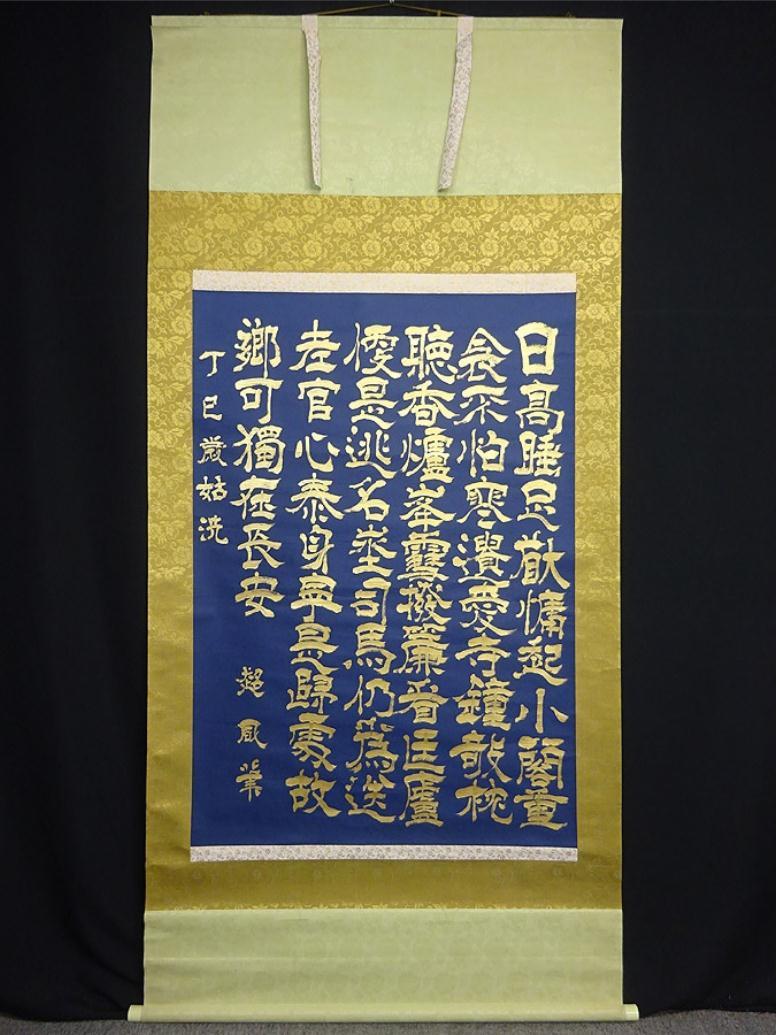 日高睡足猷慵起小閣重
衾不怕寒遺愛寺鐘敧枕
聽香爐峯雪撥簾看匡廬
便是逃名地司馬仍為送
老官心泰身寧是歸處故
鄉可獨在長安 超風筆
丁巳歳姑洗